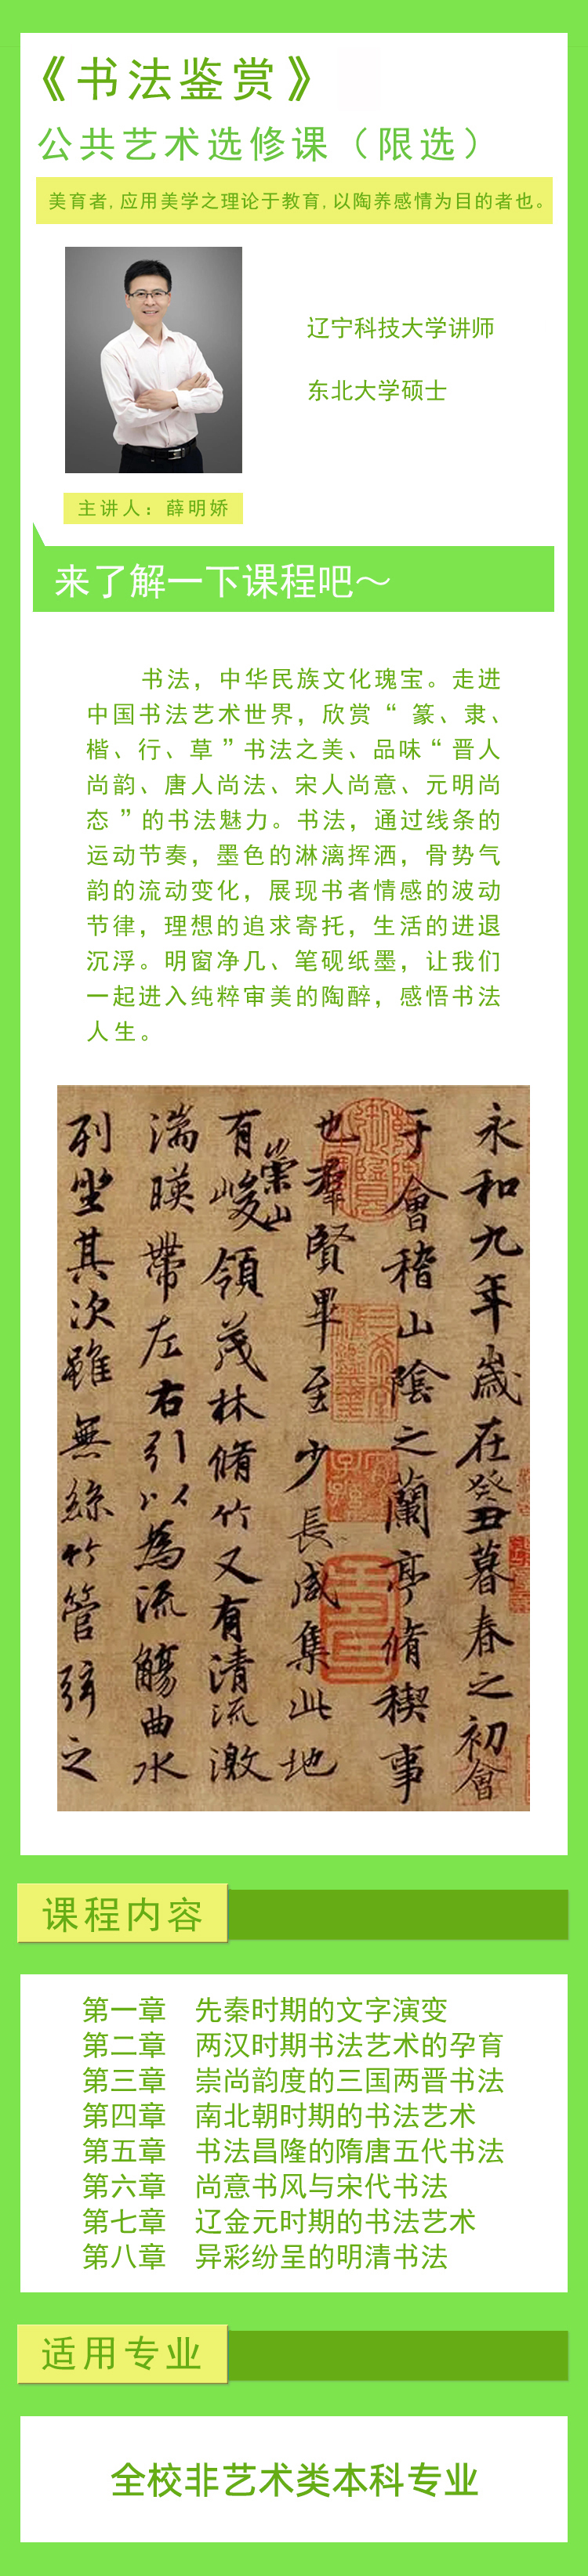 《书法鉴赏》
公共艺术选修课（限选）
美育者,应用美学之理论于教育,以陶养感情为目的者也。
辽宁科技大学讲师
东北大学硕士
主讲人：薛明娇
来了解一下课程吧～
书法，中华民族文化瑰宝。走进
中国书法艺术世界，欣赏“ 篆、隶、
楷、行、草 ”书法之美、品味“ 晋人
尚韵、唐人尚法、宋人尚意、元明尚
态 ”的书法魅力。书法，通过线条的
运动节奏，墨色的淋漓挥洒，骨势气
韵的流动变化，展现书者情感的波动
节律，理想的追求寄托，生活的进退
沉浮。明窗净几、笔砚纸墨，让我们
一起进入纯粹审美的陶醉，感悟书法
人生。
永和九年歲在癸丑暮春之初會
于會稽山陰之蘭亭脩稧事
也羣賢畢至少長咸集此地
有崇山峻領茂林脩竹又有清流激
湍暎帶左右引以為流觴曲水
列坐其次雖無絲竹管弦之
课程内容
第一章 先秦时期的文字演变
第二章 两汉时期书法艺术的孕育
第三章 崇尚韵度的三国两晋书法
第四章 南北朝时期的书法艺术
第五章 书法昌隆的隋唐五代书法
第六章 尚意书风与宋代书法
第七章 辽金元时期的书法艺术
第八章 异彩纷呈的明清书法
适用专业
全校非艺术类本科专业